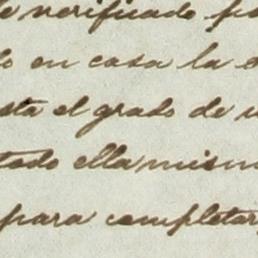 verificado
en casa la
el grado de
ella mism
para completar